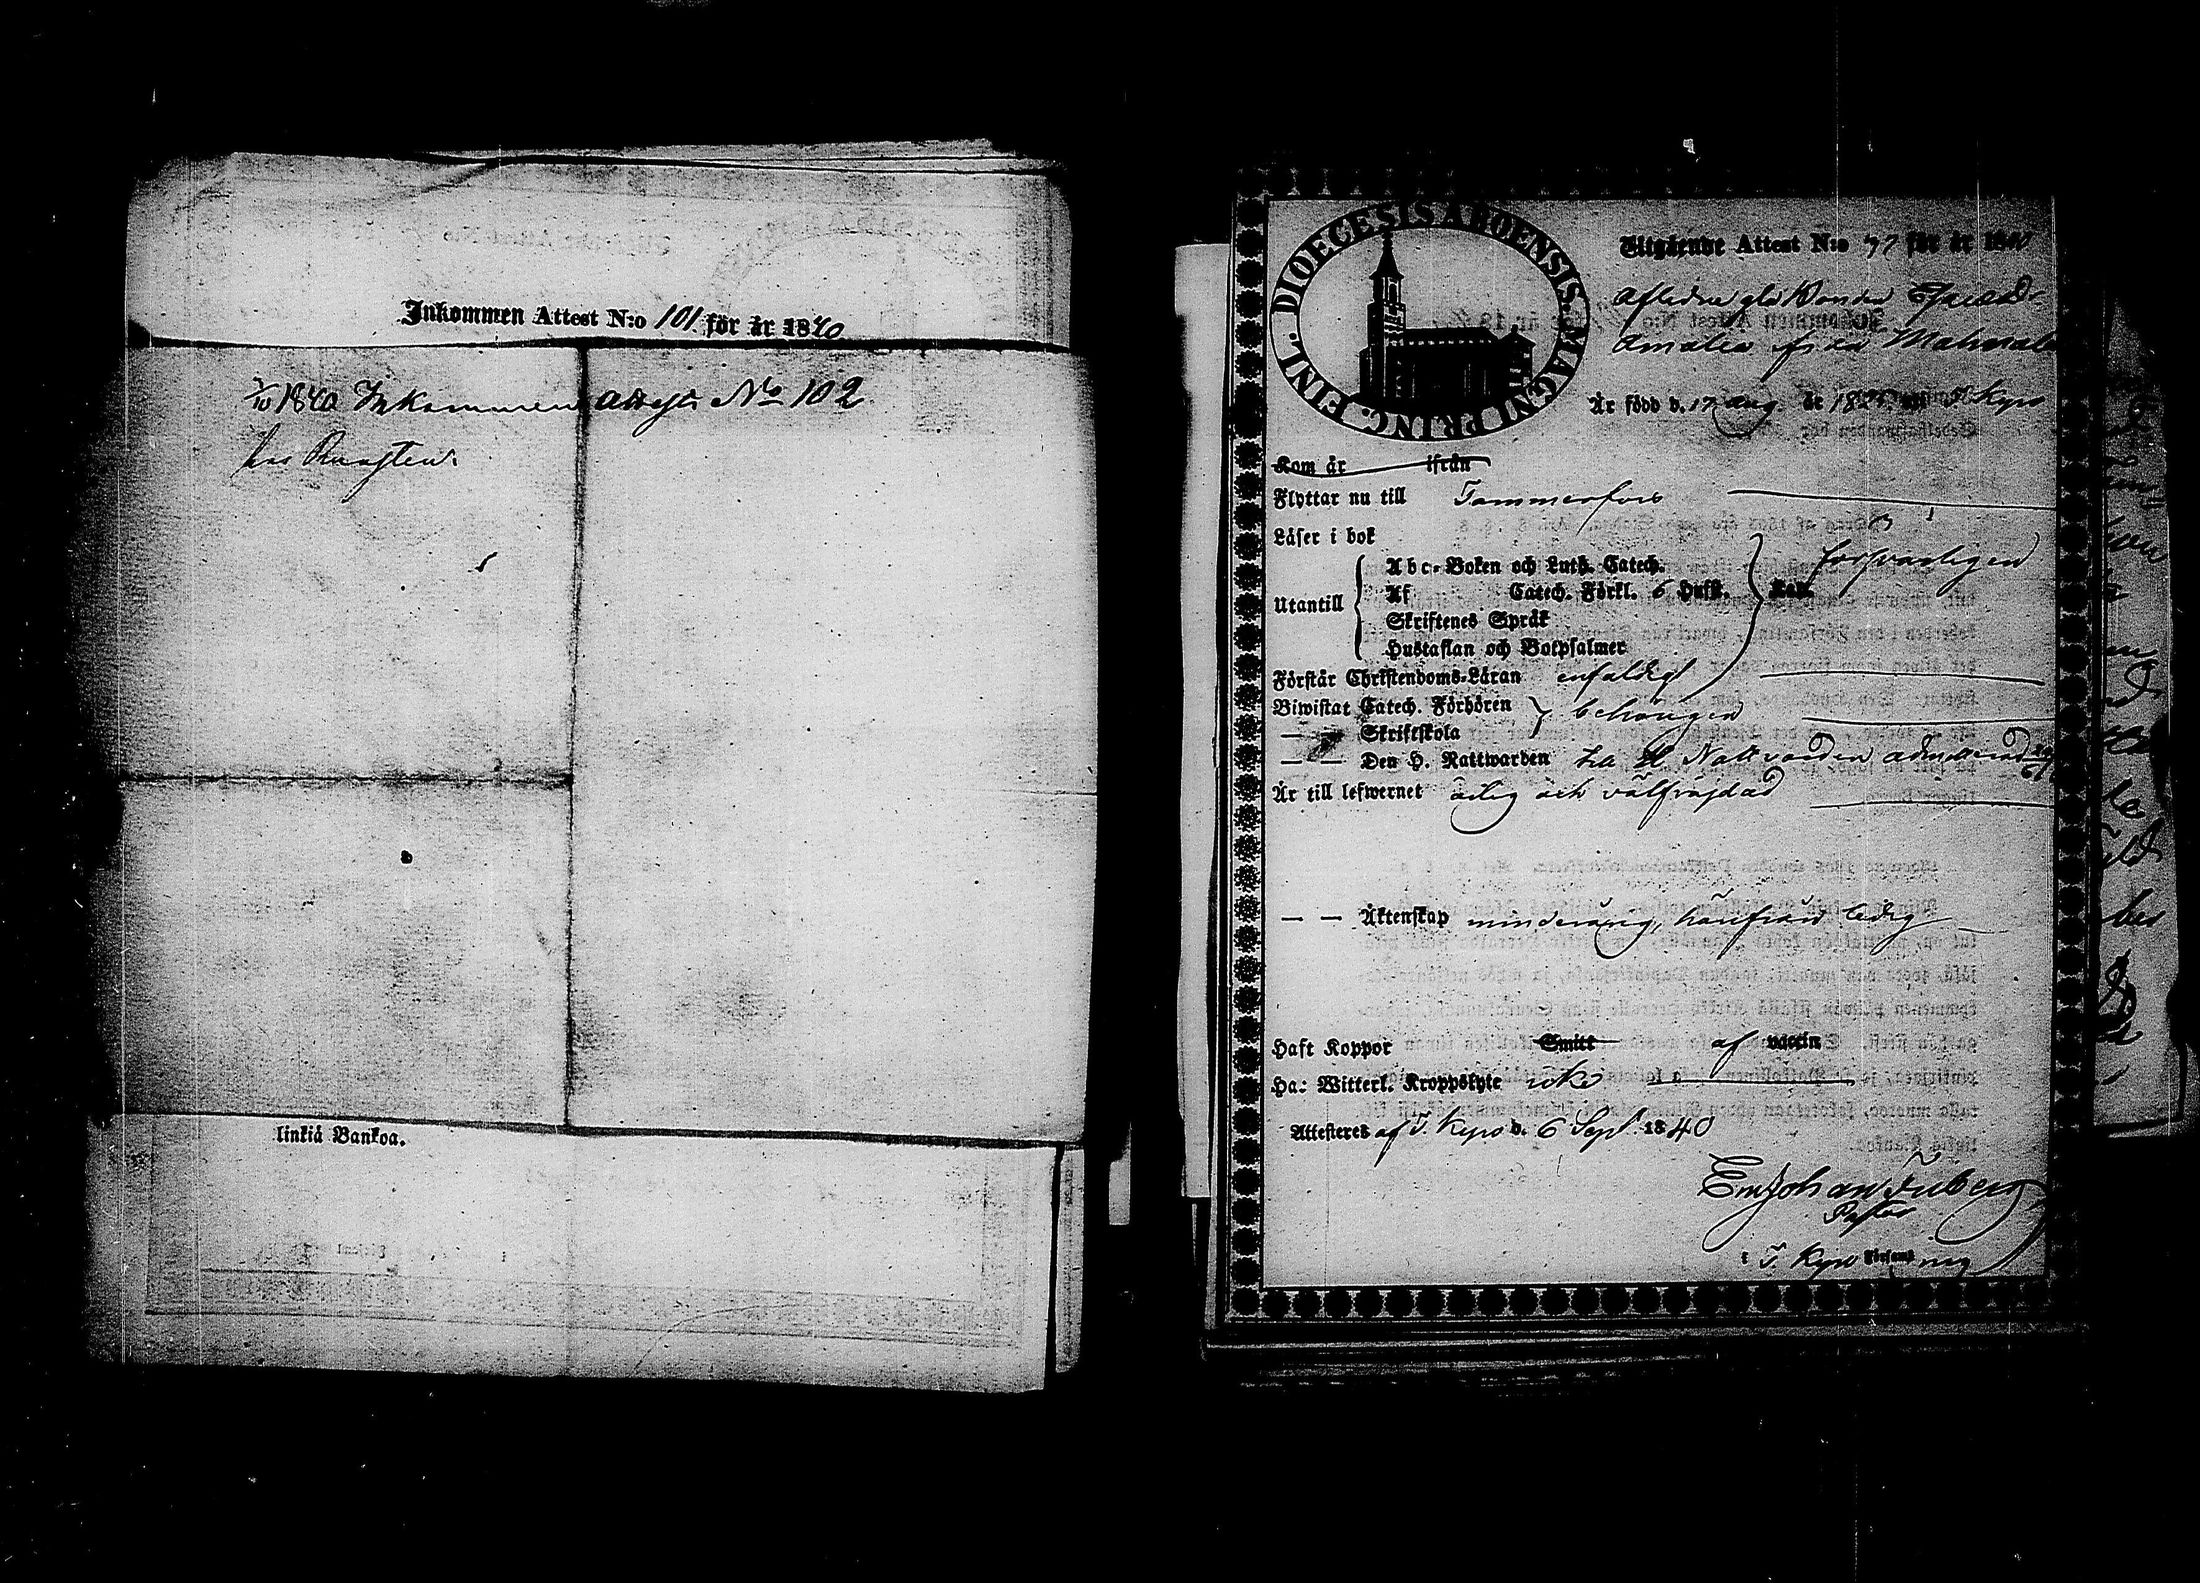 Inkommen Attest N:o 101 för år 1840
1840 Inkommen attest No 102
linkiä Bankoa.
DIOECESIS ABOENSIS MAGNI PRINC. FINL.
Utgående Attest N:o 77 för år 1840
Amalia från
Är född d. 17 Aug. år Kyro
Kom år ifrån
Flyttar nu till Tammerfors
Läser i bok
Utantill
Abc-Boken och Luth. Catech.
Af Catech. Förkl. 6 Hufst.
Skriftenes Språk
Hustaflan och Botpsalmer
försvarligen
Förstår Christendoms-Läran enfaldigt
Biwistat Catech. Förhören
— — Skriftskola
behörigen
— — Den H. Nattwarden H Nattvarden
Är till lefwernet ärlig och välfräjdad
— — Äktenskap minderårig, härifrån ledig
Haft Koppor Smitt af vaccin
Ha: Witterl. Kroppslyte
Attesteres af T. Kyro d. 6 Sept. 1840
Em Johan Friberg
Pastor
i T. Kyro Försam ning